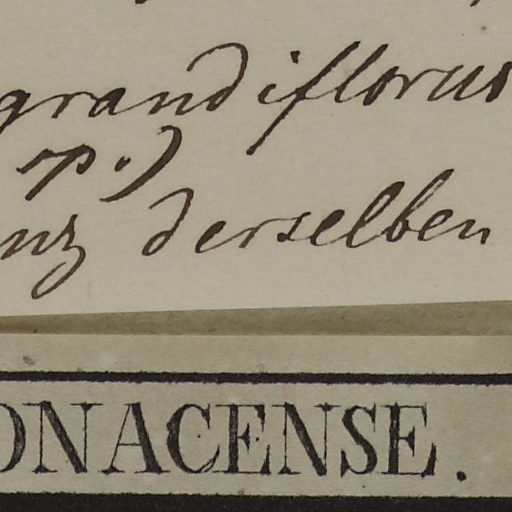 grandiflorus
sp.)
nz derselben
ONACENSE.